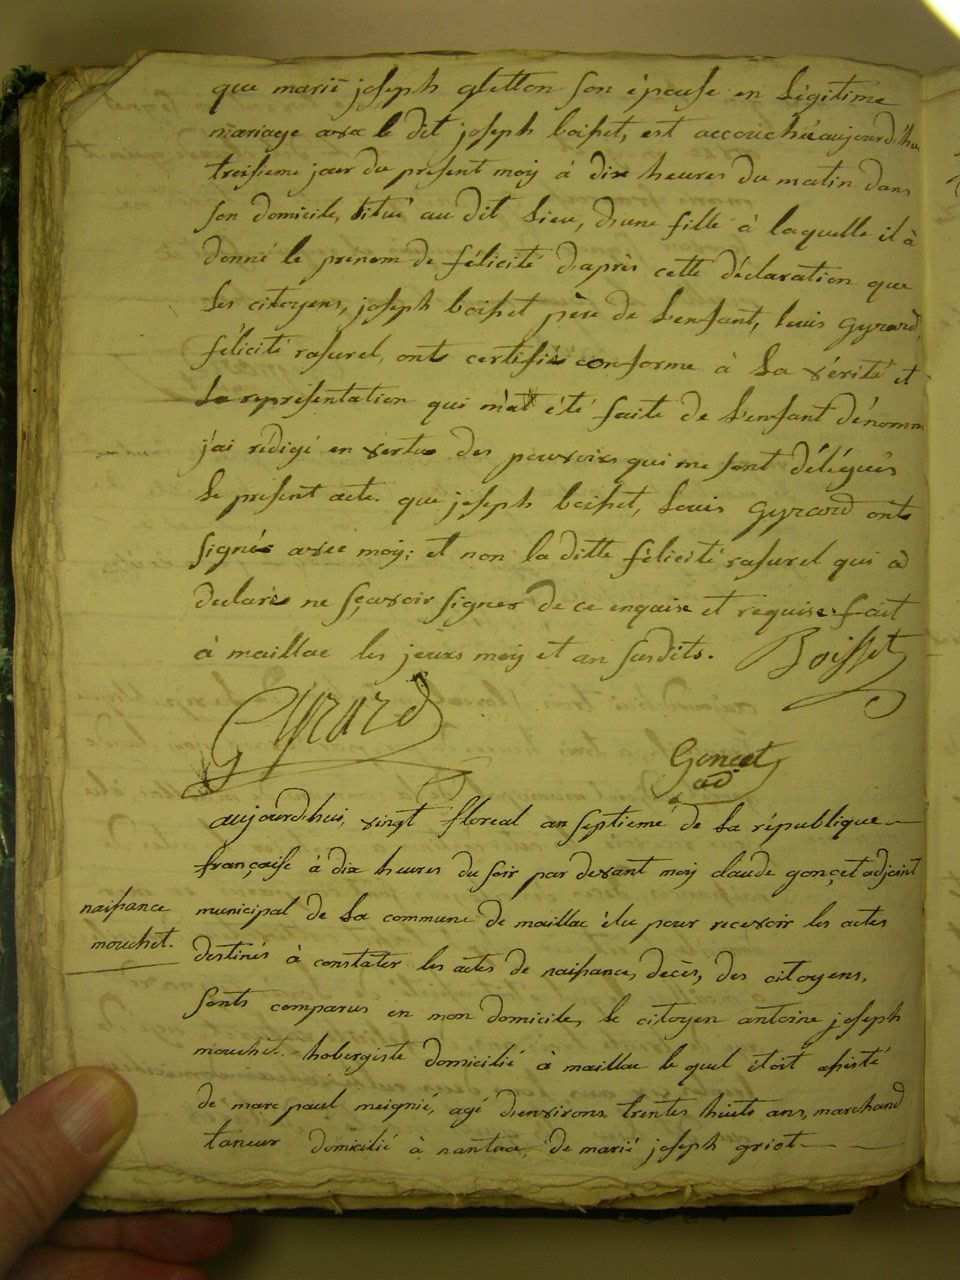 que marie joseph gletton son épouse en Légitime
mariage avec le dit joseph boisset, est accouchée aujourd'hui
treisieme jour du present moy à dix heures du matin dans
son domicile, situé au dit Lieu, d'une fille à laquelle il à
donné le prenom de félicité d'après cette déclaration que
Les citoyens, joseph boisset père de L'enfant, Louis Gyrard,
félicité rasurel, ont certifié conforme à La vérité et
La représentation qui m'at été faite de L'enfant dénomm
j'ai rédigé en vertue des pouvoirs qui me sont délégués
Le présent acte. que joseph boisset, Louis Gyrard onts
signés avec moy; et non la ditte félicité rasurel qui a
declaré ne sçavoir signer de ce enquise et requise. fait
à maillac les jours moy et an susdits. Boisset
Gyrard
Gonçet
ad.
aujourd'hui, vingt floreal an septieme de La république
française à dix heures du soir par devant moy claude gonçet adjoint
naissance
mouchet.
municipal de La commune de maillac élu pour recevoir les actes
destinés à constater les actes de naissances, decès, des citoyens,
sonts comparus en mon domicile, le citoyen antoine joseph
mouchet. hobergiste domicilié à maillac le quel étoit assisté
de marc paul meignié, agé d'environs trentes huits ans, marchand
taneur domicilié à nantua, de marie joseph griot